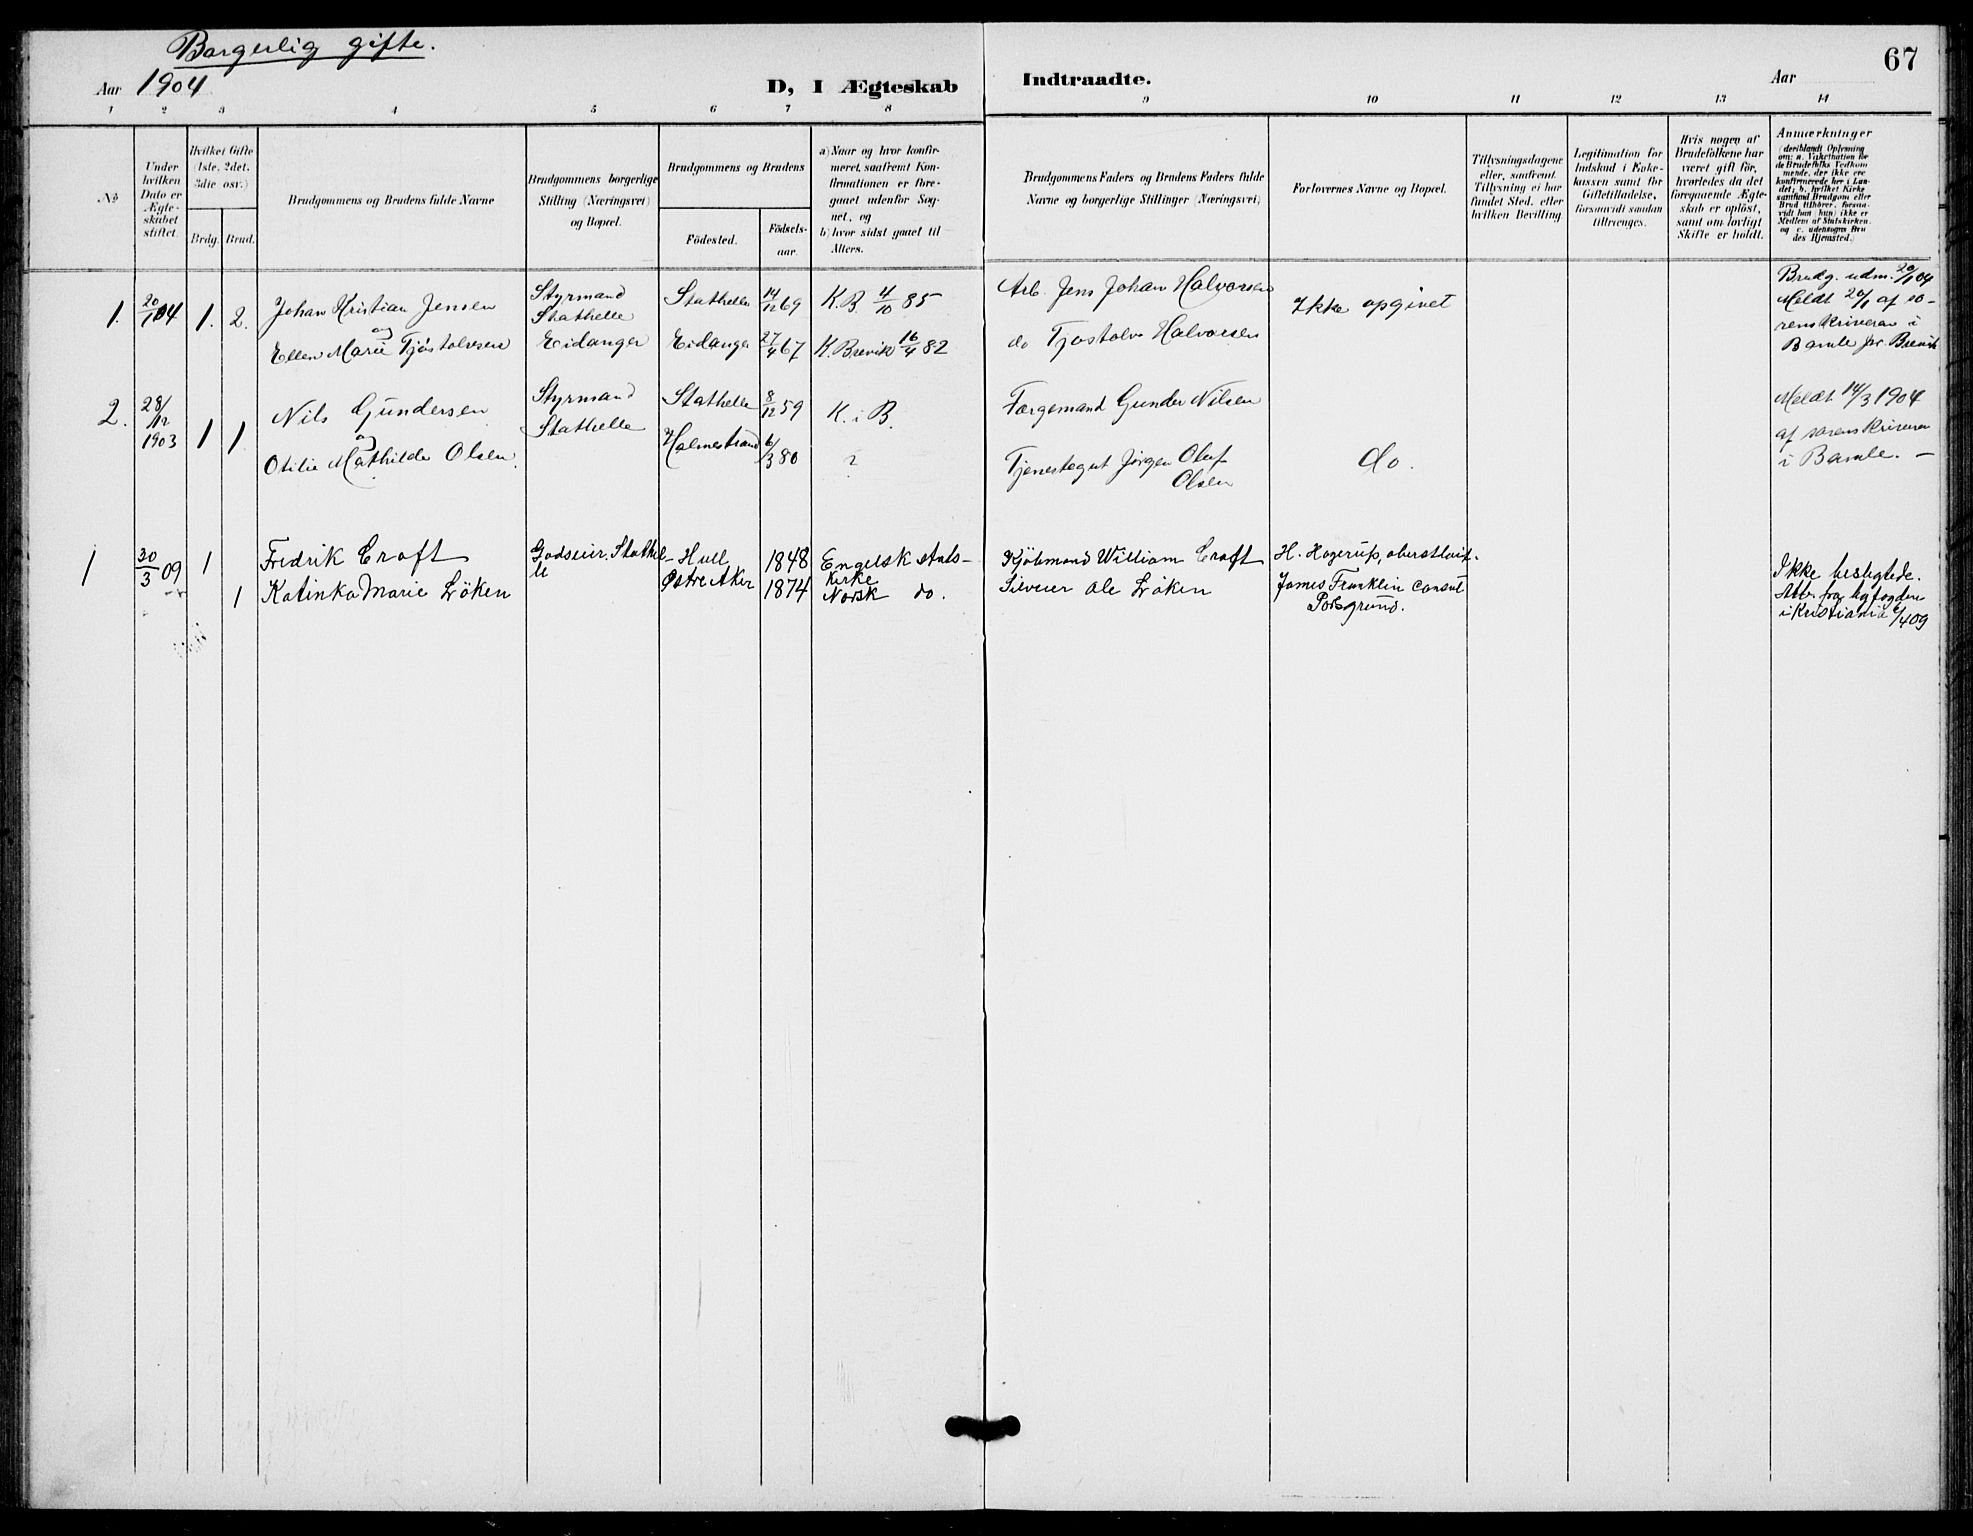 Borgerlig gifte.
67
Aar 1904
D, I Ægteskab
Indtraadte.
Aar
1 2 3 4 5 6 7 8 9 10 11 12 13 14
No
Under
hvilken
Dato er
Ægte-
skabet
stiftet.
Hvilket Gifte
(1ste, 2det,
3die osv.)
Brdg.
Brud.
Brudgommens og Brudens fulde Navne
Brudgommens borgerlige
Stilling (Næringsvei)
og Bopæl.
Brudgommens og Brudens
Födested.
Födsels-
aar.
a) Naar og hvor konfir-
meret, saafremt Kon-
firmationen er fore-
gaaet udenfor Sog-
net, og
b) hvor sidst gaaet til
Alters.
Brudgommens Faders og Brudens Faders fulde
Navne og borgerlige Stillinger (Næringsvei)
Forlovernes Navne og Bopæl.
Tillysningsdagene
eller, saafremt
Tillysning ei har
fundet Sted, efter
hvilken Bevilling.
Legitimation for
Indskud i Enke-
kassen samt for
Giftetilladelse,
forsaavidt saadan
tiltrænges.
Hvis nogen af
Brudefolkene har
været gift för,
hvorledes da det
foregaaende Ægte-
skab er oplöst,
samt om lovligt
Skifte er holdt.
Anmærkninger
(deriblandt Oplysning
om: a. Vakcination for
de Brudefolks Vedkom
mende, der ikke ere
konfirmerede her i Lan-
det; b. hvilket Kirke
samfund Brudgom eller
Brud tilhörer, forsaa-
vidt han (hun) ikke er
Medlem af Statskirken,
og c. udensogns Bru
des Hjemsted.)
1. 20/1 04 1. 2. Johan Kristian Jensen
og
Ellen Marie Tjøstolvsen
Styrmand
Stathelle
Eidanger
Stathelle 14/12 69 K.B. 4/10 85
Eidanger 27/4 67 K. Brevik 16/4 82
Arb. Jens Johan Halvorsen
do Tjostolv Halvorsen
Ikke opgivet
Brudg. udm. 20/1 04
Meldt 20/1 af so-
renskriveren i
Bamle pr. Brevik
2. 28/12 1903 1 1 Nils Gundersen
og
Otilie Mathilde Olsen.
Styrmand
Stathelle
Stathelle 8/12 59 K. i B.
Holmestrand 6/3 80 ?
Færgemand Gunder Nilsen
Tjenestegut Jørgen Oluf
Olsen
do.
Meldt 14/3 1904
af sorenskriveren
i Bamle. –
1 30/3 09 1 Fredrik Croft
1 Katinka Marie Löken
Godseier. Stathel-
le
Hull 1848 Engelsk stats-
kirke
Østre Aker 1874 Norsk do.
Kjöbmand William Croft
Selveier Ole Löken
H. Hagerup, oberstløit.
James Franklin consul
Porsgrund.
Ikke beslegtede.
Att. fra byfogden
i Kristiania 6/4 09